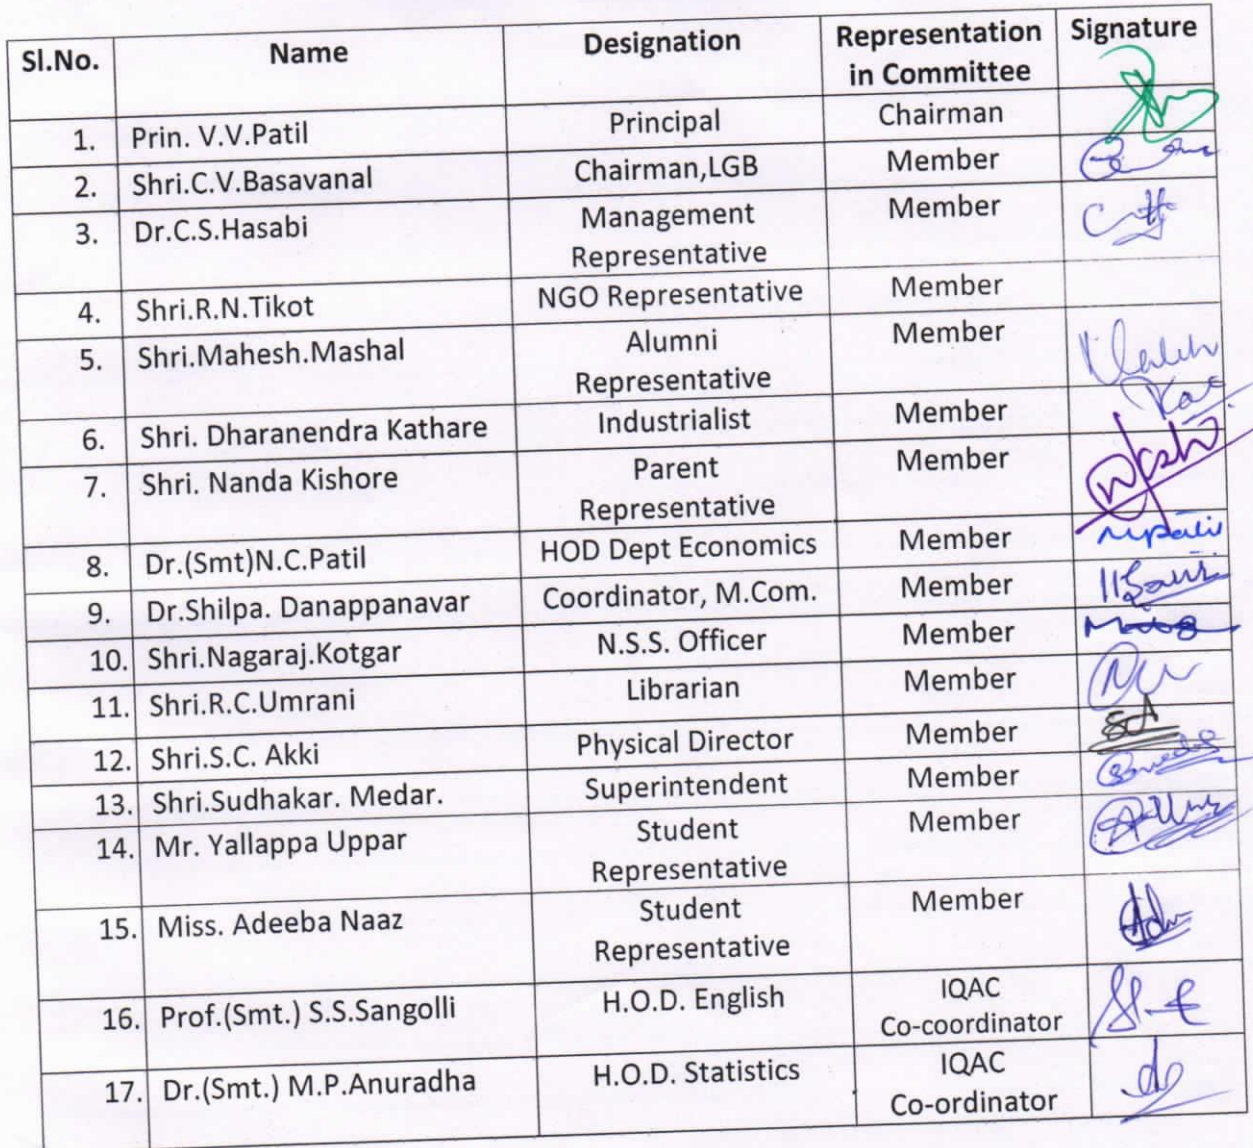 Sl.No. Name Designation Representation in Committee Signature
1. Prin. V.V.Patil Principal Chairman
2. Shri.C.V.Basavanal Chairman,LGB Member
3. Dr.C.S.Hasabi Management Representative Member
4. Shri.R.N.Tikot NGO Representative Member
5. Shri.Mahesh.Mashal Alumni Representative Member
6. Shri. Dharanendra Kathare Industrialist Member
7. Shri. Nanda Kishore Parent Representative Member
8. Dr.(Smt)N.C.Patil HOD Dept Economics Member
9. Dr.Shilpa. Danappanavar Coordinator, M.Com. Member
10. Shri.Nagaraj.Kotgar N.S.S. Officer Member
11. Shri.R.C.Umrani Librarian Member
12. Shri.S.C. Akki Physical Director Member
13. Shri.Sudhakar. Medar. Superintendent Member
14. Mr. Yallappa Uppar Student Representative Member
15. Miss. Adeeba Naaz Student Representative Member
16. Prof.(Smt.) S.S.Sangolli H.O.D. English IQAC Co-coordinator
17. Dr.(Smt.) M.P.Anuradha H.O.D. Statistics IQAC Co-ordinator